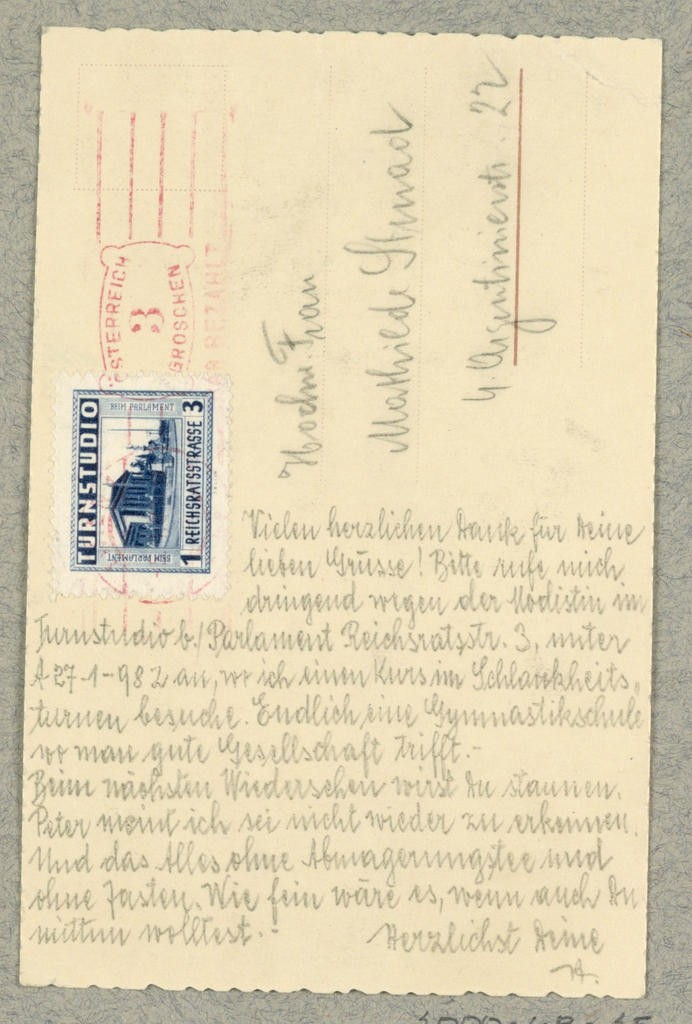 ÖSTERREICH
3
GROSCHEN
BAR BEZAHLT
TURNSTUDIO
BEIM PARLAMENT
BEIM PARLAMENT
1 REICHSRATSSTRASSE 3
Hochw. Frau
Mathilde Strnad
4. Argentinierstr. 22
Vielen herzlichen Dank für Deine
lieben Grüsse! Bitte rufe mich
dringend wegen der Modistin im
Turnstudio b./Parlament Reichsratsstr. 3, unter
A 27-1-98 Z an, wo ich einen Kurs im Schlankheits-
turnen besuche. Endlich eine Gymnastikschule
wo man gute Gesellschaft trifft.-
Beim nächsten Wiedersehen wirst Du staunen.
Peter meint ich sei nicht wieder zu erkennen.
Und das Alles ohne Abmagerungstee und
ohne Fasten. Wie fein wäre es, wenn auch Du
mittun wolltest.-
Herzlichst Deine
A.